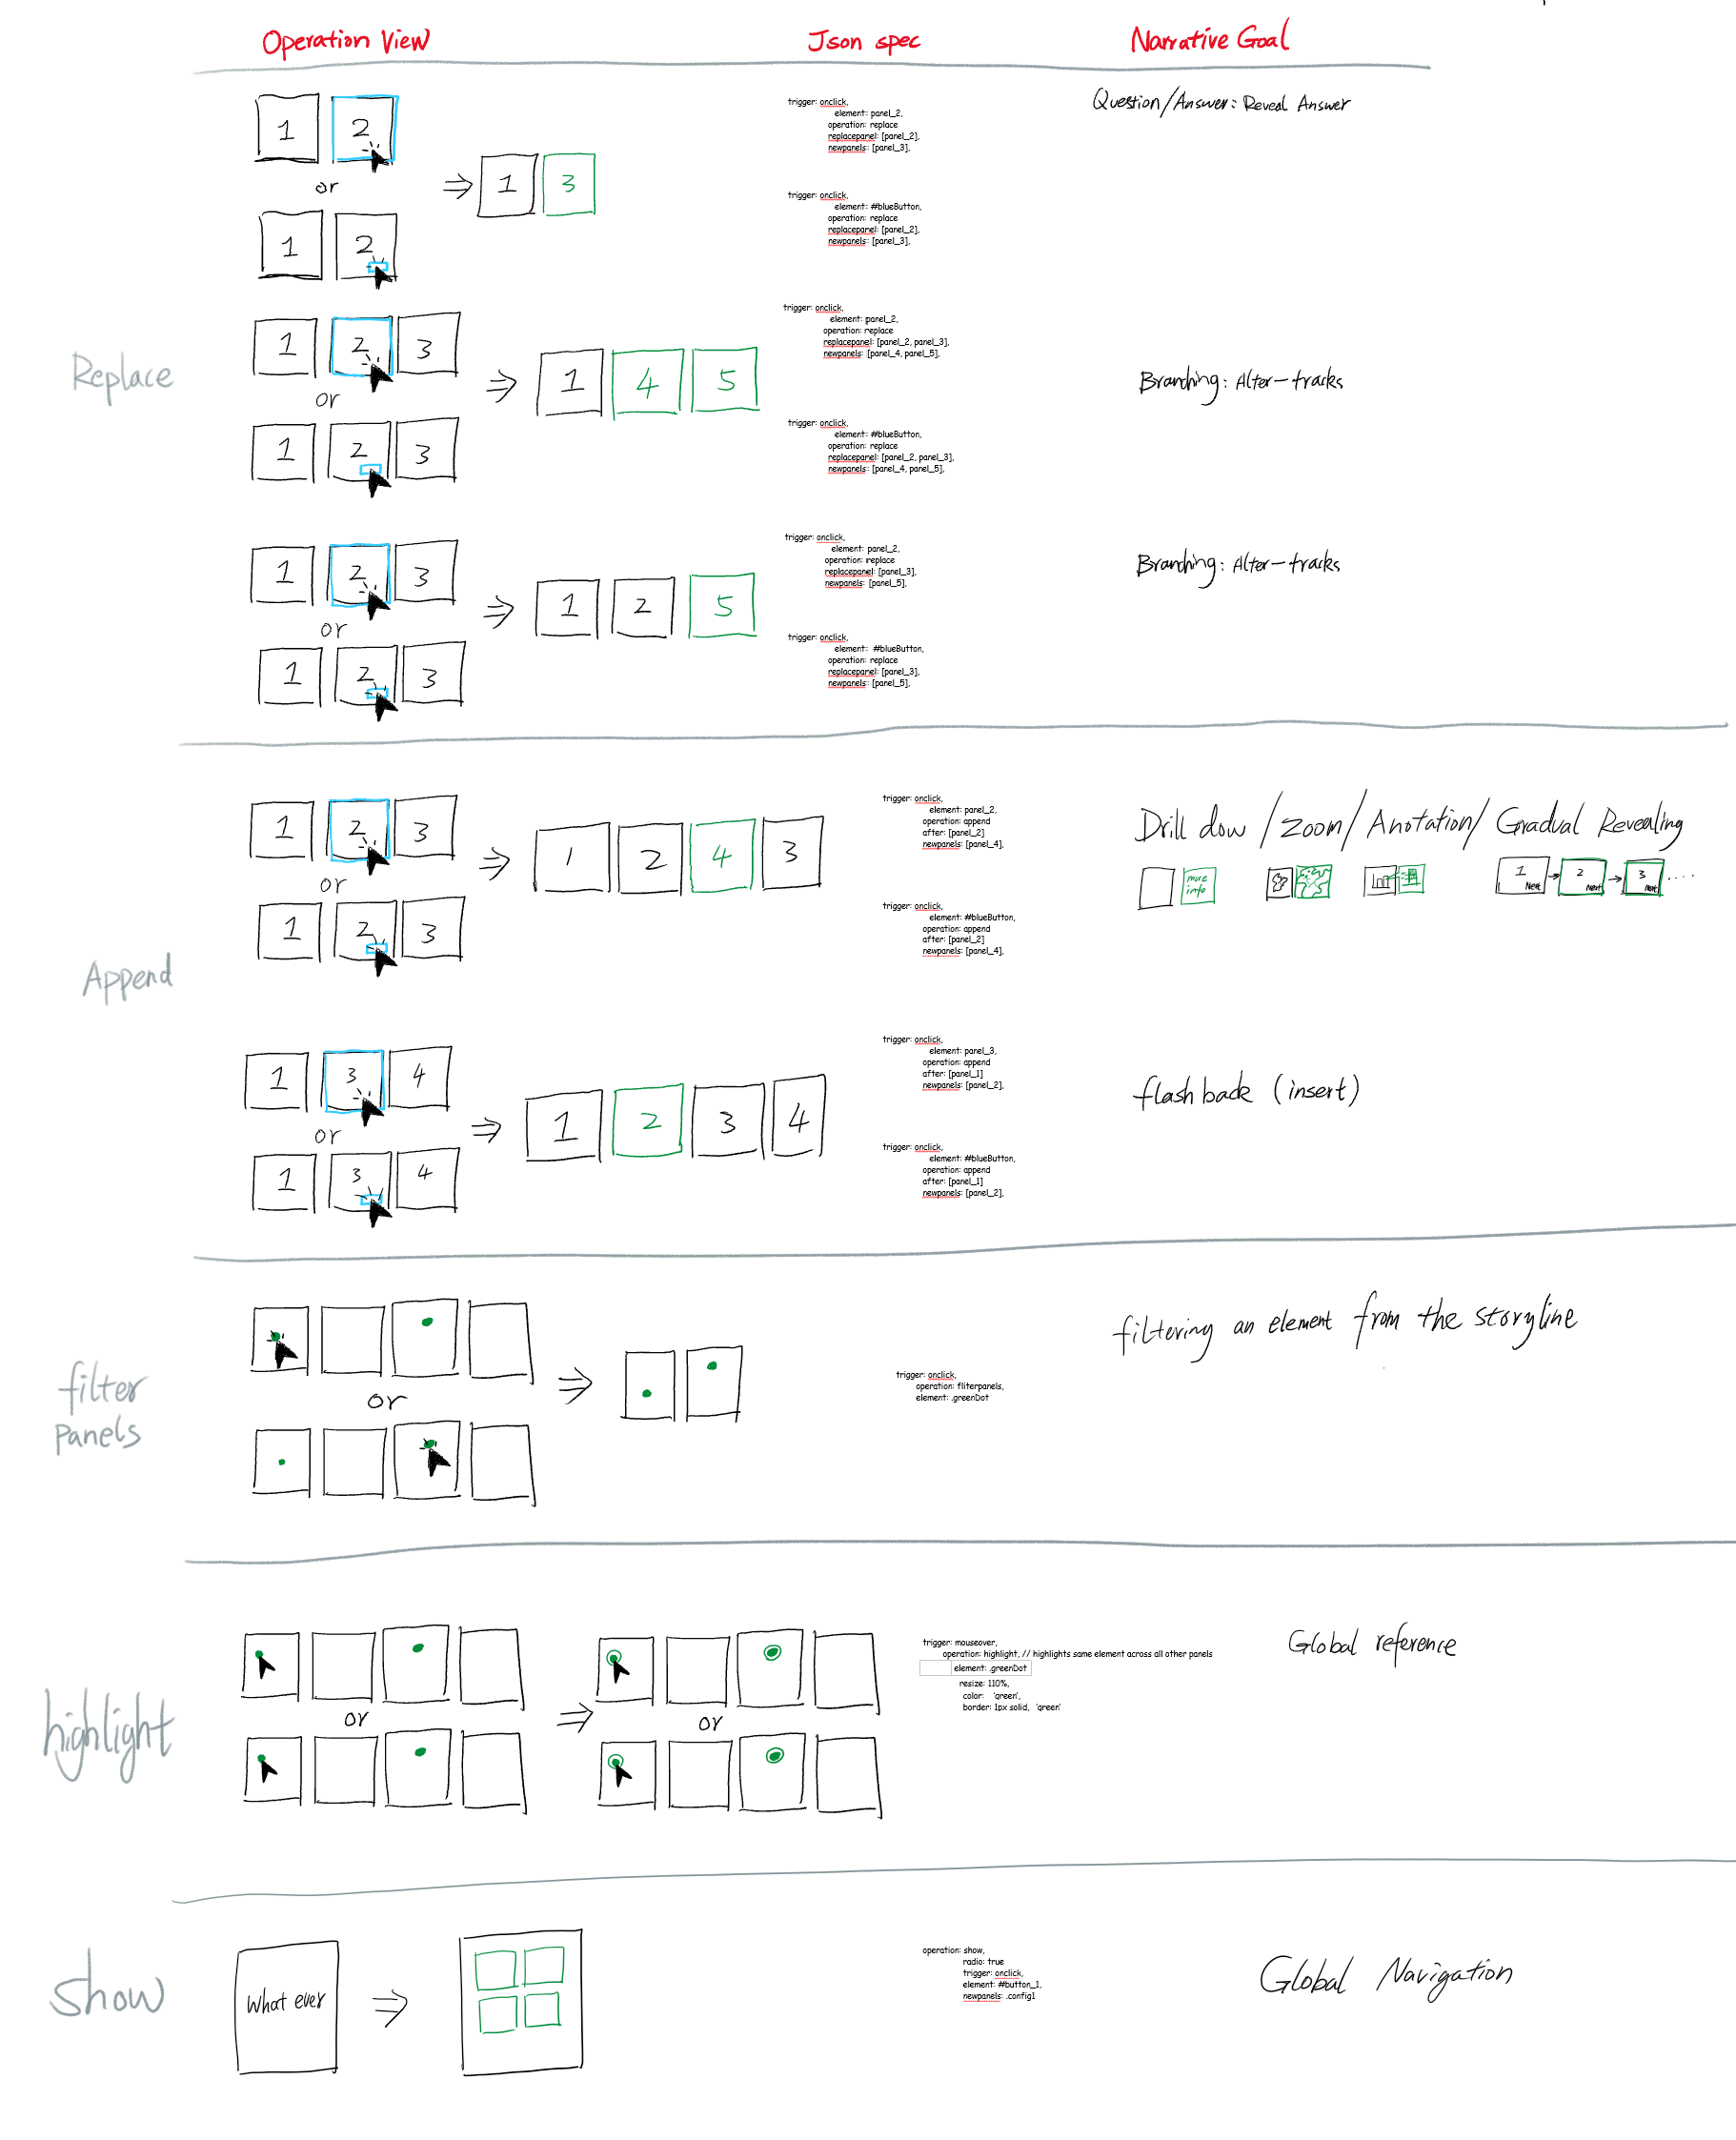 Operation View
Json spec
Narrative Goal
Replace
1 2
or
1 2
⇒ 1 3
trigger: onclick,
element: panel_2,
operation: replace
replacepanel: [panel_2],
newpanels: [panel_3],
trigger: onclick,
element: #blueButton,
operation: replace
replacepanel: [panel_2],
newpanels: [panel_3],
Question/Answer: Reveal Answer
1 2 3
or
1 2 3
⇒ 1 4 5
trigger: onclick,
element: panel_2,
operation: replace
replacepanel: [panel_2, panel_3],
newpanels: [panel_4, panel_5],
trigger: onclick,
element: #blueButton,
operation: replace
replacepanel: [panel_2, panel_3],
newpanels: [panel_4, panel_5],
Branching: Alter-tracks
1 2 3
or
1 2 3
⇒ 1 2 5
trigger: onclick,
element: panel_2,
operation: replace
replacepanel: [panel_3],
newpanels: [panel_5],
trigger: onclick,
element: #blueButton,
operation: replace
replacepanel: [panel_3],
newpanels: [panel_5],
Branching: Alter-tracks
Append
1 2 3
or
1 2 3
⇒ 1 2 4 3
trigger: onclick,
element: panel_2,
operation: append
after: [panel_2]
newpanels: [panel_4],
trigger: onclick,
element: #blueButton,
operation: append
after: [panel_2]
newpanels: [panel_4],
Drill dow /zoom/ Anotation/ Gradual Revealing
more
info
1 Next → 2 Next → 3 Next ....
1 3 4
or
1 3 4
⇒ 1 2 3 4
trigger: onclick,
element: panel_3,
operation: append
after: [panel_1]
newpanels: [panel_2],
trigger: onclick,
element: #blueButton,
operation: append
after: [panel_1]
newpanels: [panel_2],
flash back (insert)
filter
panels
or
⇒
trigger: onclick,
operation: fliterpanels,
element: .greenDot
filtering an element from the storyline
highlight
or
⇒
or
trigger: mouseover,
operation: highlight, // highlights same element across all other panels
element: .greenDot
resize: 110%,
color: 'green',
border: 1px solid, 'green'
Global reference
show
What ever
⇒
operation: show,
radio: true
trigger: onclick,
element: #button_1,
newpanels: .config1
Global Navigation